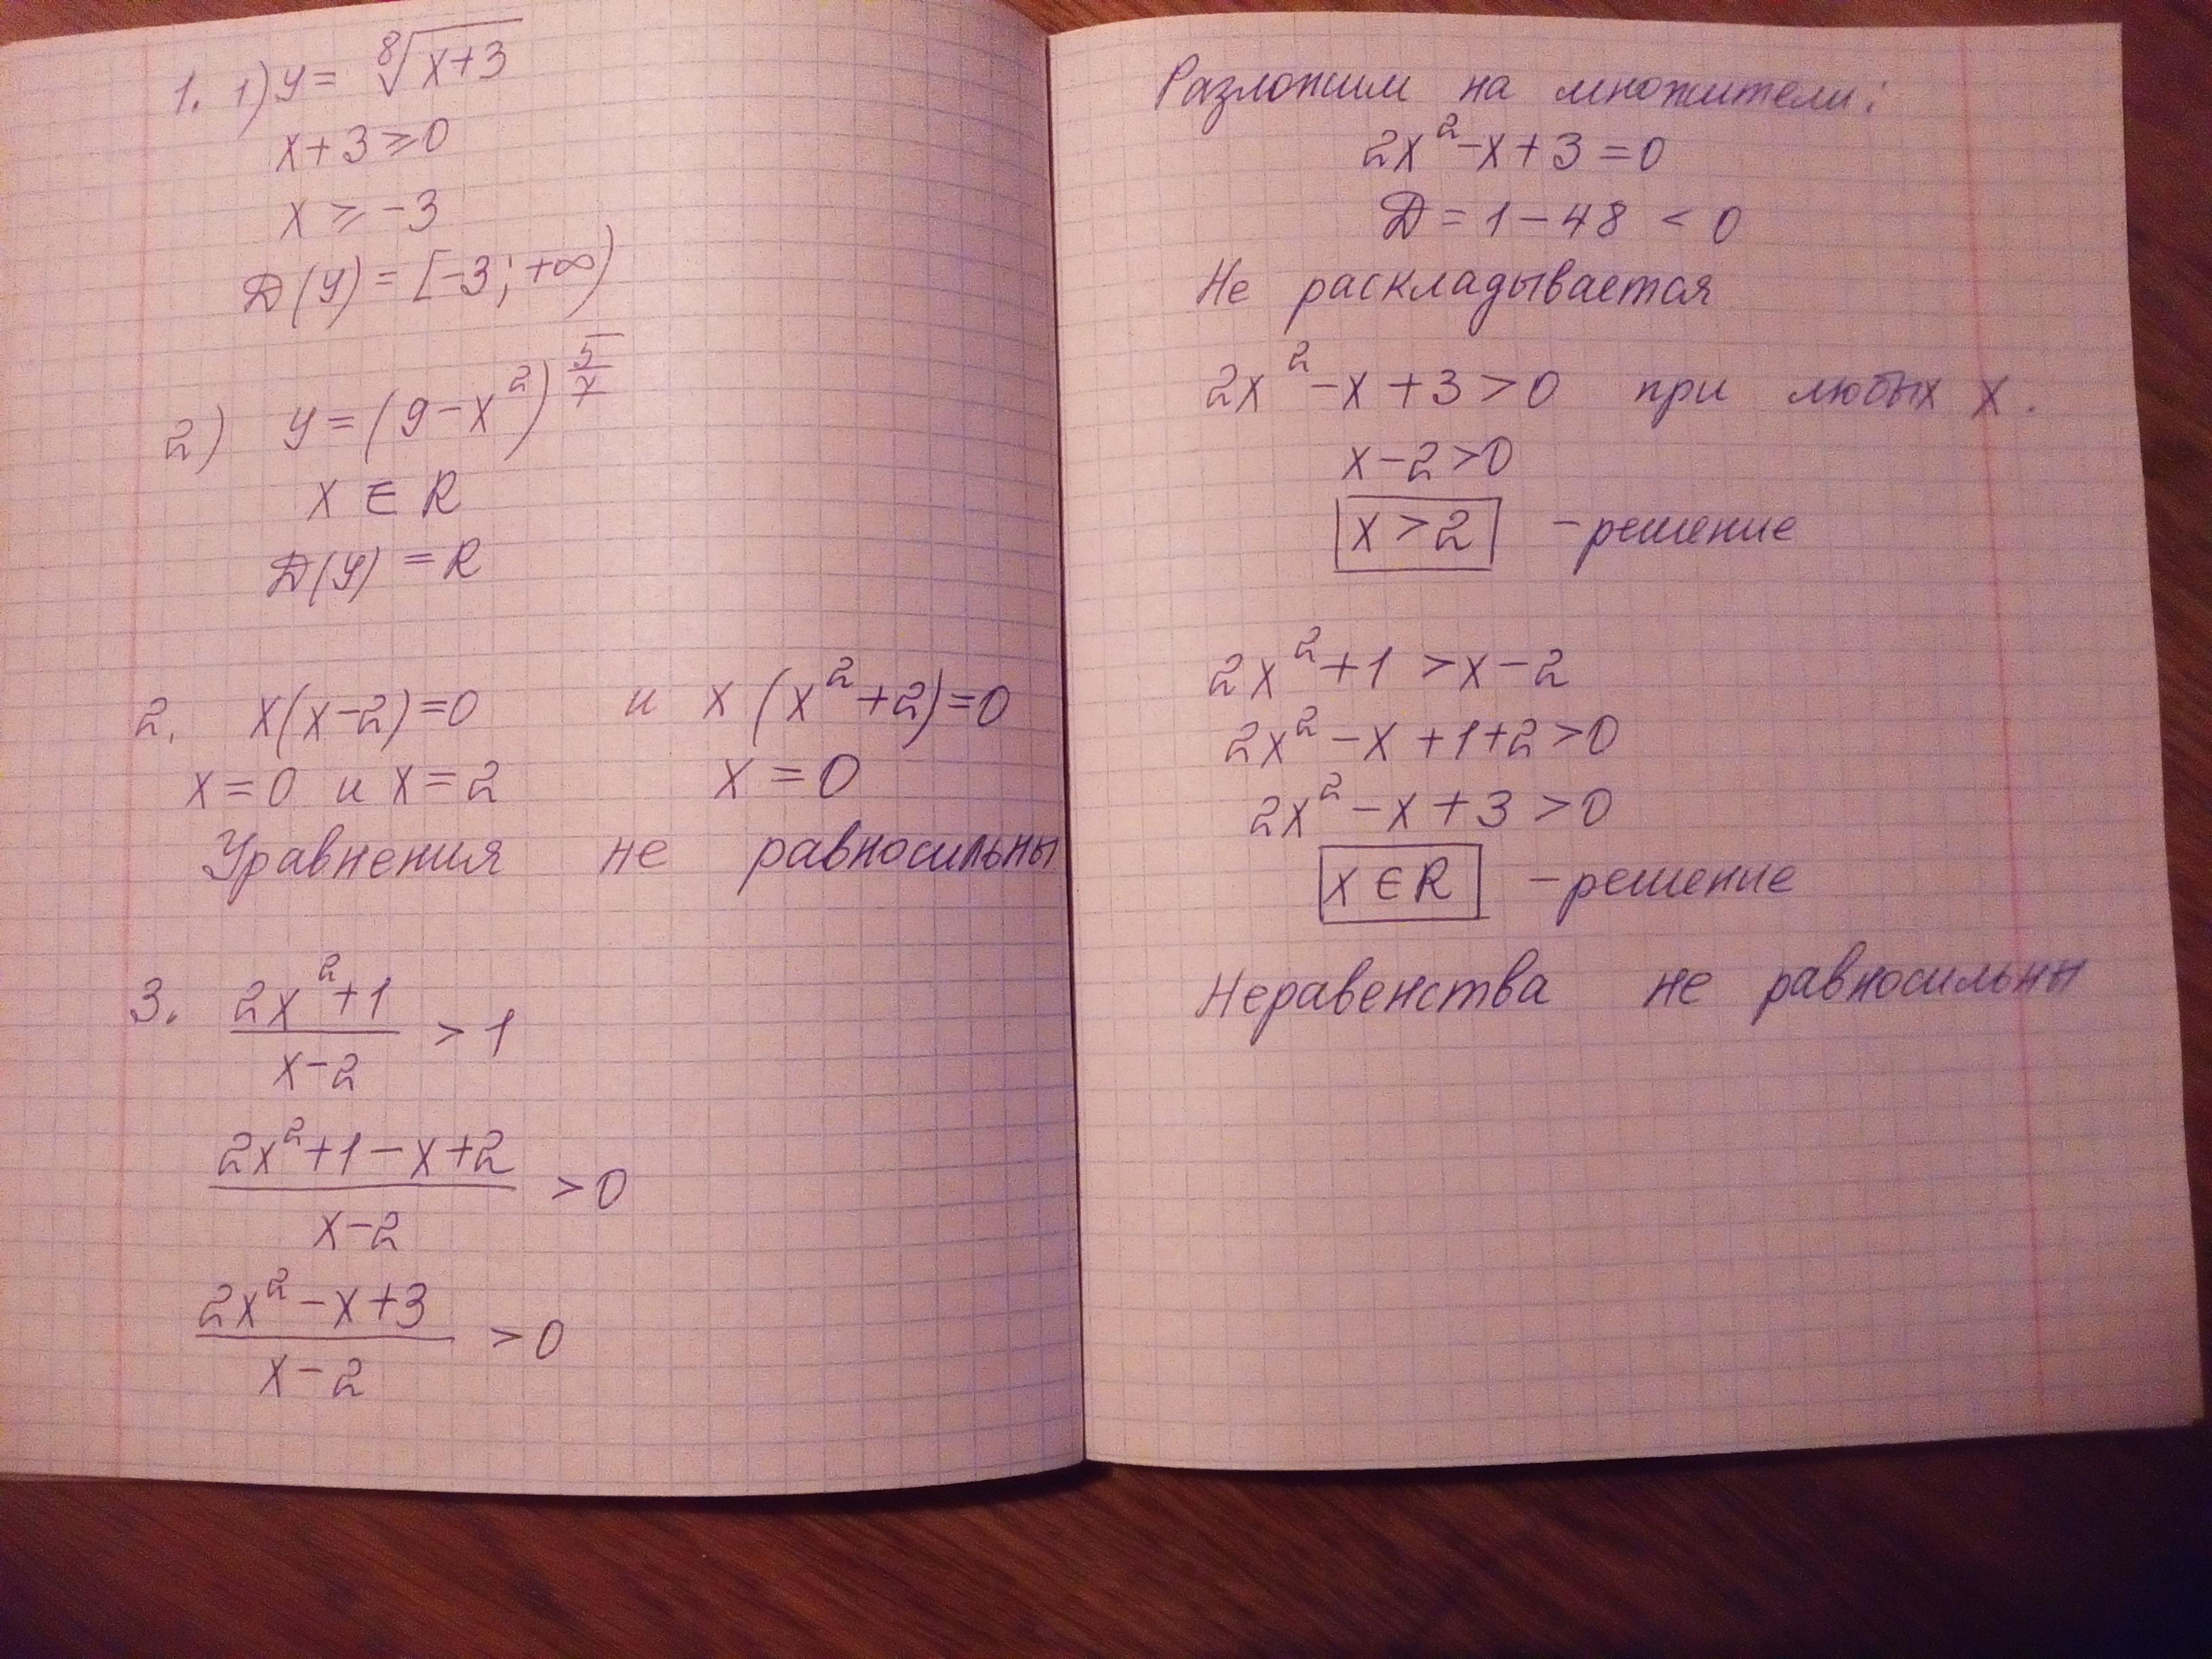 1. 1) y = ⁸√(x+3)
x+3 ≥ 0
x ≥ -3
D(y) = [-3; +∞)
2) y = (9-x²)^(5/7)
x ∈ R
D(y) = R
2. x(x-2)=0 и x(x²+2)=0
x=0 и x=2 x=0
Уравнения не равносильны
3. (2x²+1)/(x-2) > 1
(2x²+1-x+2)/(x-2) > 0
(2x²-x+3)/(x-2) > 0
Разложим на множители:
2x²-x+3=0
D = 1-48 < 0
Не раскладывается
2x²-x+3>0 при любых x.
x-2>0
x>2 - решение
2x²+1 > x-2
2x²-x+1+2>0
2x²-x+3>0
x ∈ R - решение
Неравенства не равносильны